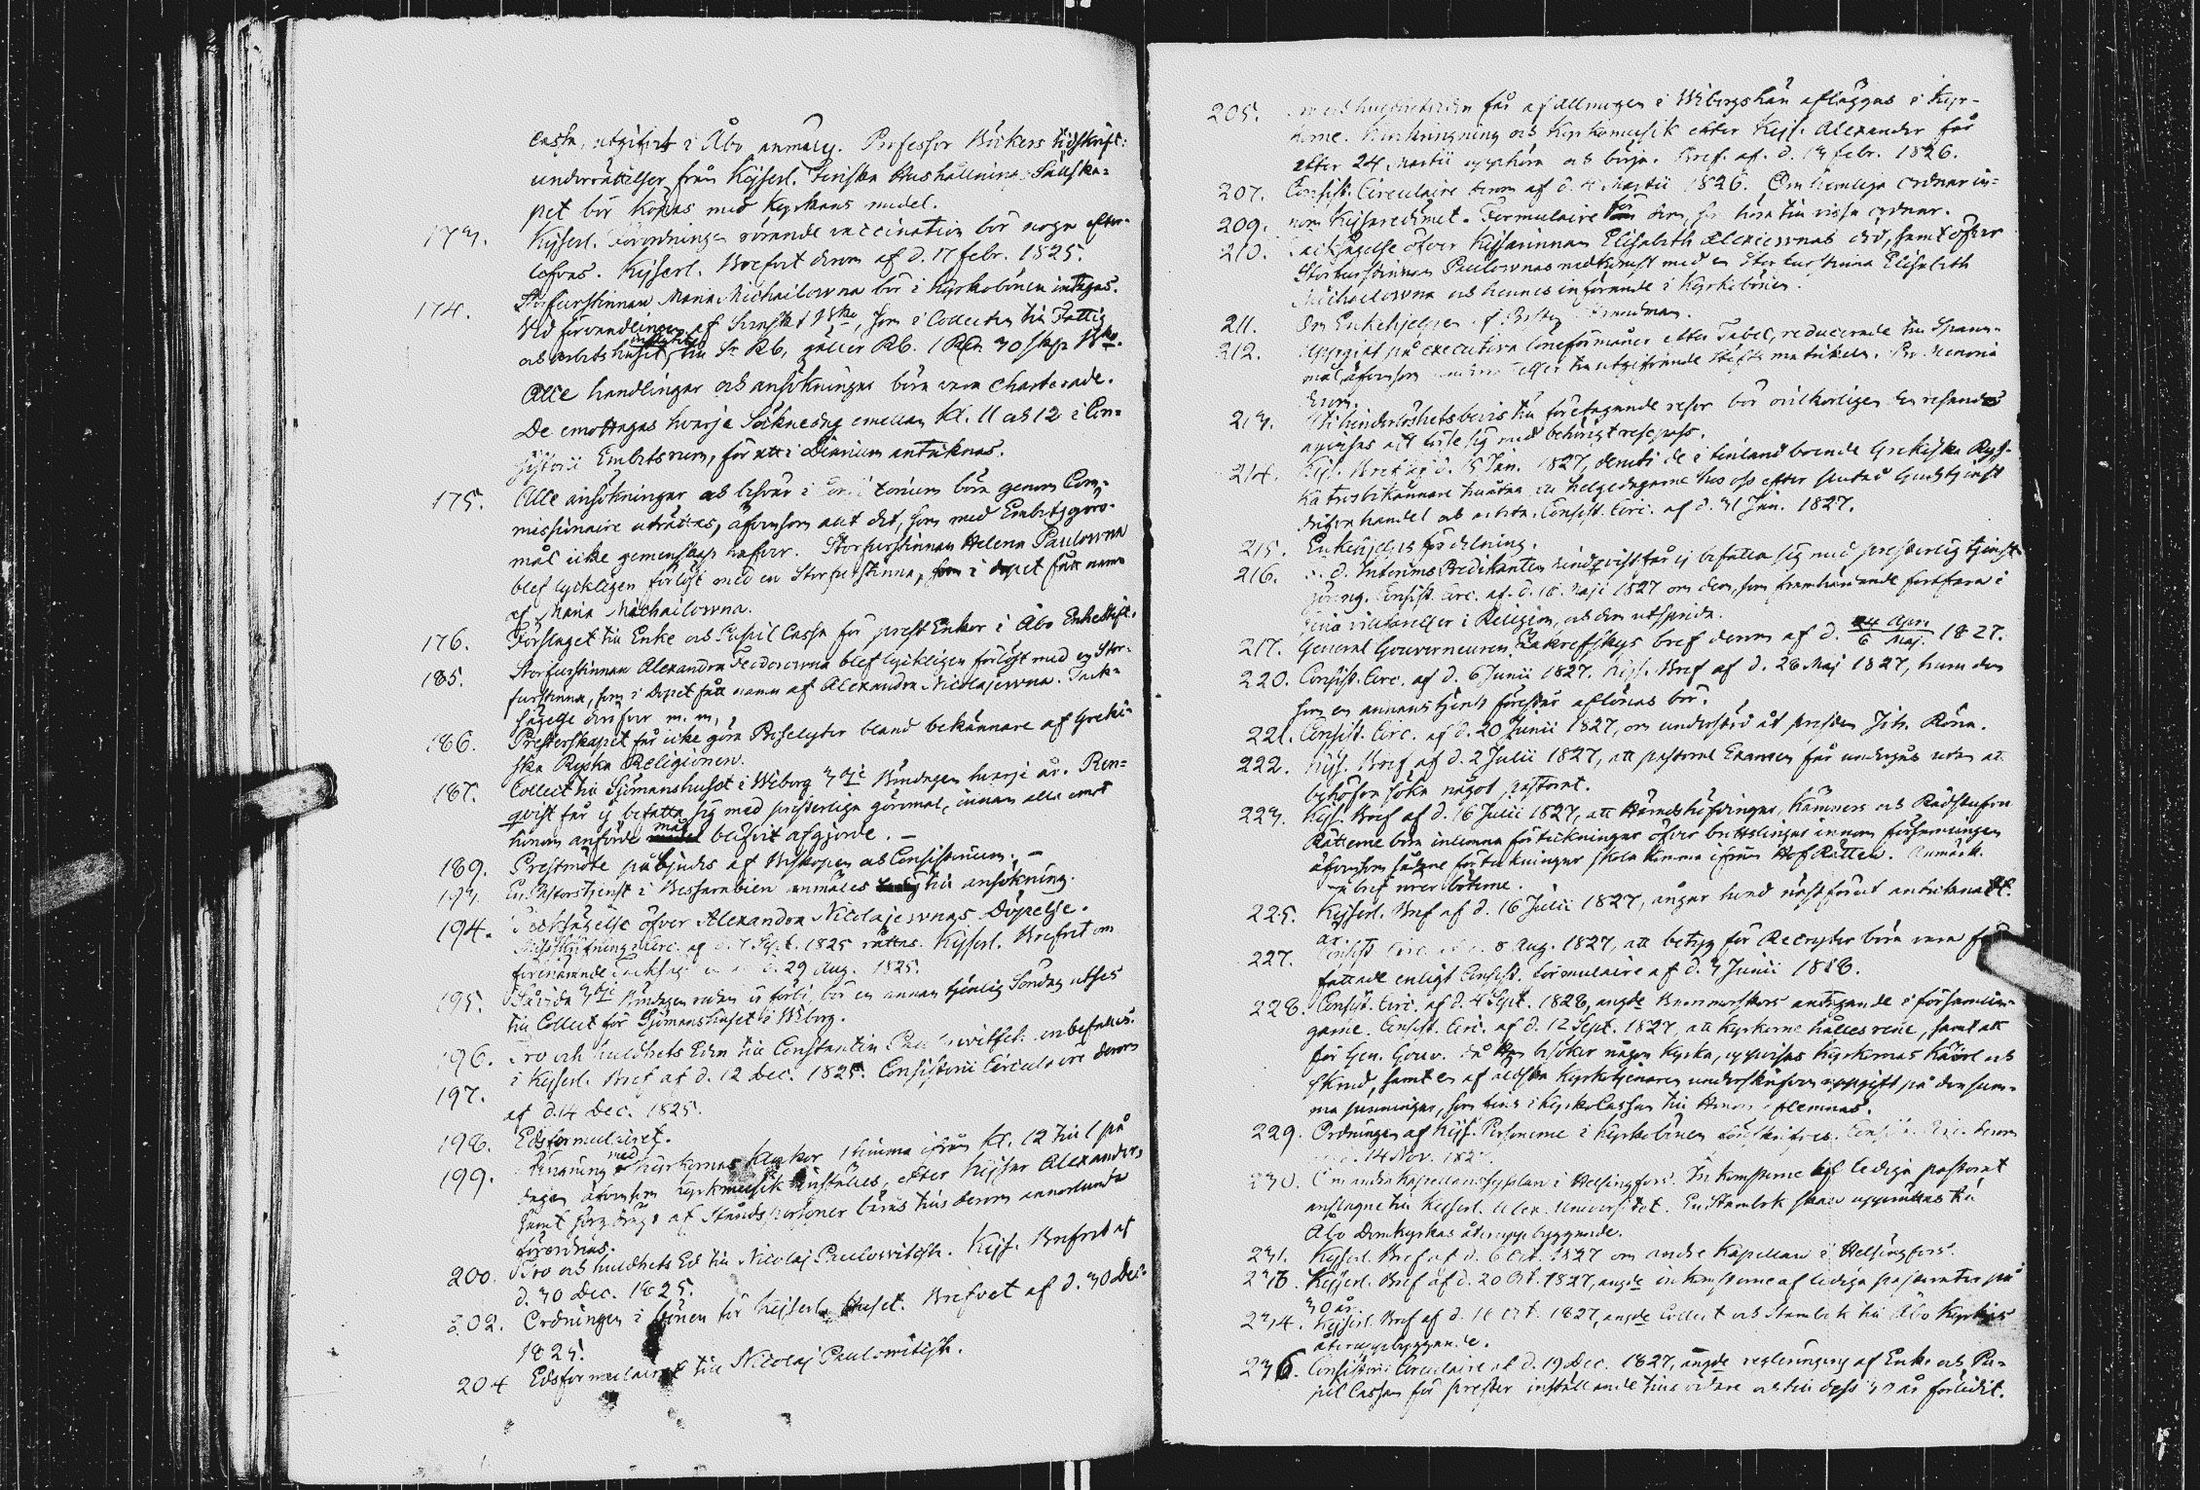 Cassa, utgifvit i Åbo anmäles. Professor Böckers tidskrift:
underrättelser från Kejserl. Finska Hushållnings-Sällska-
pet bör köpas med Kyrkans medel.
173. Kejserl. Förordningen rörande vaccination bör noga efter-
lefvas. Kejserl. Brefvet derom af d. 17 febr. 1825.
174. Storfurstinnan Maria Michailowna bör i Kyrkobönen intagas.
Vid förvandlingen af, som i Collecten till Fattig
och arbets huset till Sr Rb, gäller Rb. 1 30
Alle handlingar och ansökningar böra vara charterade.
De emottagas hvarje Söknedag emellan kl. 11 och 12 i Con-
sistorii Embetsrum, för att i Diarium antecknas.
175. Alle ansökningar och besvär i Consistorium böra genom Com-
missionaire uträttas, äfvensom allt det, som med Embetsgöro-
mål icke gemenskap hafver. Storfurstinnan Helena Paulowna
blef lyckligen förlöst med en Storfurstinna, som i dopet fått namn
af Maria Michailowna.
176. Förslaget till Enke och Pupil Cassa för prest Enkor i Åbo Erkestift.
185. Storfurstinnan Alexandra Feodorowna blef lyckligen förlöst med en Stor-
furstinna, som i dopet fått namn af Alexandra Nicolajewna. Tack-
sägelse deröfver m. m.
186. Presterskapet får icke göra Proselyter bland bekännare af Greki-
ska Ryska Religionen.
187. Collect till Sjömanshuset i Wiborg 3dje Böndagen hvarje år. Ren-
qvist får ej befatta sig med presterliga göromål, innan alla emot
honom anförde mål blifvit afgjorde. —
189. Prestmöte påbjudes af Biskopen och Consistorium. —
193. En Pastorstjenst i Bessarabien anmäles till ansökning.
194. Tacksägelse öfver Alexandra Nicolajewnas Döpelse.
Circ. af d. 7 Sept. 1825 rättas. Kejserl. Brefvet om
förenämnde d. 29 Aug. 1825.
195. Såvida 3dje Böndagen redan är förbi, bör en annan tjenlig Söndag utses
till Collect för Sjömanshuset i Wiborg.
196. Tro och huldhets Eden till Constantin anbefalles
i Kejserl. Bref af d. 12 Dec. 1825. Consistorii Circulaire derom
197. af d. 14 Dec. 1825.
198. Edsformulairet.
199. Ringning med kyrkornas klockor 1 timma ifrån kl. 12 till 1 på
dagen äfvensom kyrkmusik inställes, efter Kejsar Alexander,
samt sorgdrägt af Ståndspersoner bäres tills derom annorlunda
förordnas.
200. Tro och huldhets Ed till Nicolaj Paulowitsch. Kejs. Brefvet af
d. 30 Dec. 1825.
202. Ordningen i bönen för Kejserl. Huset. Brefvet af d. 30 Dec.
1825.
204 Edsformulairet till Nicolaj Paulowitsch.
205. får af allmogen i Wiborgs län afläggas i Kyr-
korne. Ringning och Kyrkomusik efter Kejs. Alexander får
efter 24 Martii upphöra och börja. Bref. af. d. 13 febr. 1826.
207. Consist. Circulaire derom af d. 4 Martii 1826. Om hemliga ordnar in-
209. nom Kejsaredömet. Formulaire för dem, som höra till vissa ordnar.
210. Tacksägelse öfver Kejsarinnan Elisabeth Alexiewnas död, samt öfver
Storfurstinnan Paulownas nedkomst med en Storfurstinna Elisabeth
Michailowna och hennes införande i Kyrkobönen.
211. Om Enkehjelpen
212. Uppgift på execution löneförmåner efter Tabel, reducerade till Spann-
mål, äfvensom till utgifvande Stifts matrikeln. Pro Memoria
derom.
213. Uti hinderlöshetsbevis till företagande resor bör ovilkorligen den resande
anvisas att förse sig med behörigt respass.
214. Kejs. Bref af d. 15 Jan. 1827, deruti de i Finland boende Grekiska Ryss-
ka trosbekännare tillåtas att helgedagarne hos oss efter slutad Gudstjenst
drifva handel och arbeta. Consist. Circ. af d. 31 Jan. 1827.
215. Enkehjelpens fördelning.
216. v. d. Interims Predikanten får ej befatta sig med presterlig tjenst-
göring. Consist. Circ. af d. 16 Maji 1827 om dem, som framhärdande fortfara i
sina villfarelser i Religion, och dem utsprida.
217. General Gouverneuren Zakrefskys bref derom af d. 24 Apr./6 Maj. 1827.
220. Consist. Circ. af d. 6 Junii 1827. Kejs. Bref af d. 28 Maj 1827, huru den
som en annans tjenst förestår aflönas bör.
221. Consist. Circ. af d. 20 Junii 1827, om understöd åt presten Joh. Rönn.
222. Kejs. Bref af d. 2 Julii 1827, att pastoral Examen får undergås utan att
behöfva söka något pastorat.
223. Kejs. Bref af d. 16 Julii 1827, att Häradshöfdingar, Kämners och Rådstufvu
Rätterne böra inlemna förteckningar öfver brottslingar innom församlingen
äfvensom sådane förteckningar skola komma ifrån HofRätten. Anmärk.
bref öfver böterne.
225. Kejserl. Bref af d. 16 Julii 1827, angår hvad näst förut antecknadt
är.
227. Consist. Circ. 8 Aug. 1827, att betyg för Recryter böra vara för-
fattade enligt Consist. formulaire af d. 3 Junii 1818.
228. Consist. Circ. af d. 4 Sept. 1828, angde Barnmorskors antagande i församlin-
garne. Consist. Circ. af d. 12 Sept. 1827, att Kyrkorne hålles rene, samt att
för Gen. Gouv. då Han besöker någon Kyrka, uppvisas Kyrkornas kärl och
skrud, samt en af äldsta Kyrkotjenaren underskrifven uppgift på den sum-
ma penningar, som fins i KyrkoCassan till Honom aflemnas.
229. Ordningen af Kejs. Personerne i Kyrkobönen föreskrifves. Consist. Circ. derom
14 Nov. 1827.
230. Om andra Kapellanssysslan i Helsingfors. Inkomsterne af lediga pastorat
anslagne till Kejserl. Alex. Universitet. En Stambok skall upprättas till
Åbo Domkyrkas återuppbyggande.
231. Kejserl. Bref af d. 6 Oct. 1827 om andre Kapellan i Helsingfors.
233. Kejserl. Bref af d. 20 Oct. 1827, angde inkomsterne af lediga pastorater på
30 år.
234. Kejserl. Bref af d. 16 Oct. 1827, angde Collect och Stambok till Åbo Kyrkas
återuppbyggande.
236. Consistorii Circulaire af d. 19 Dec. 1827, angde reglering af Enke och Pu-
pil Cassan för prester inställande tills vidare och till dess 30 år förlidit.